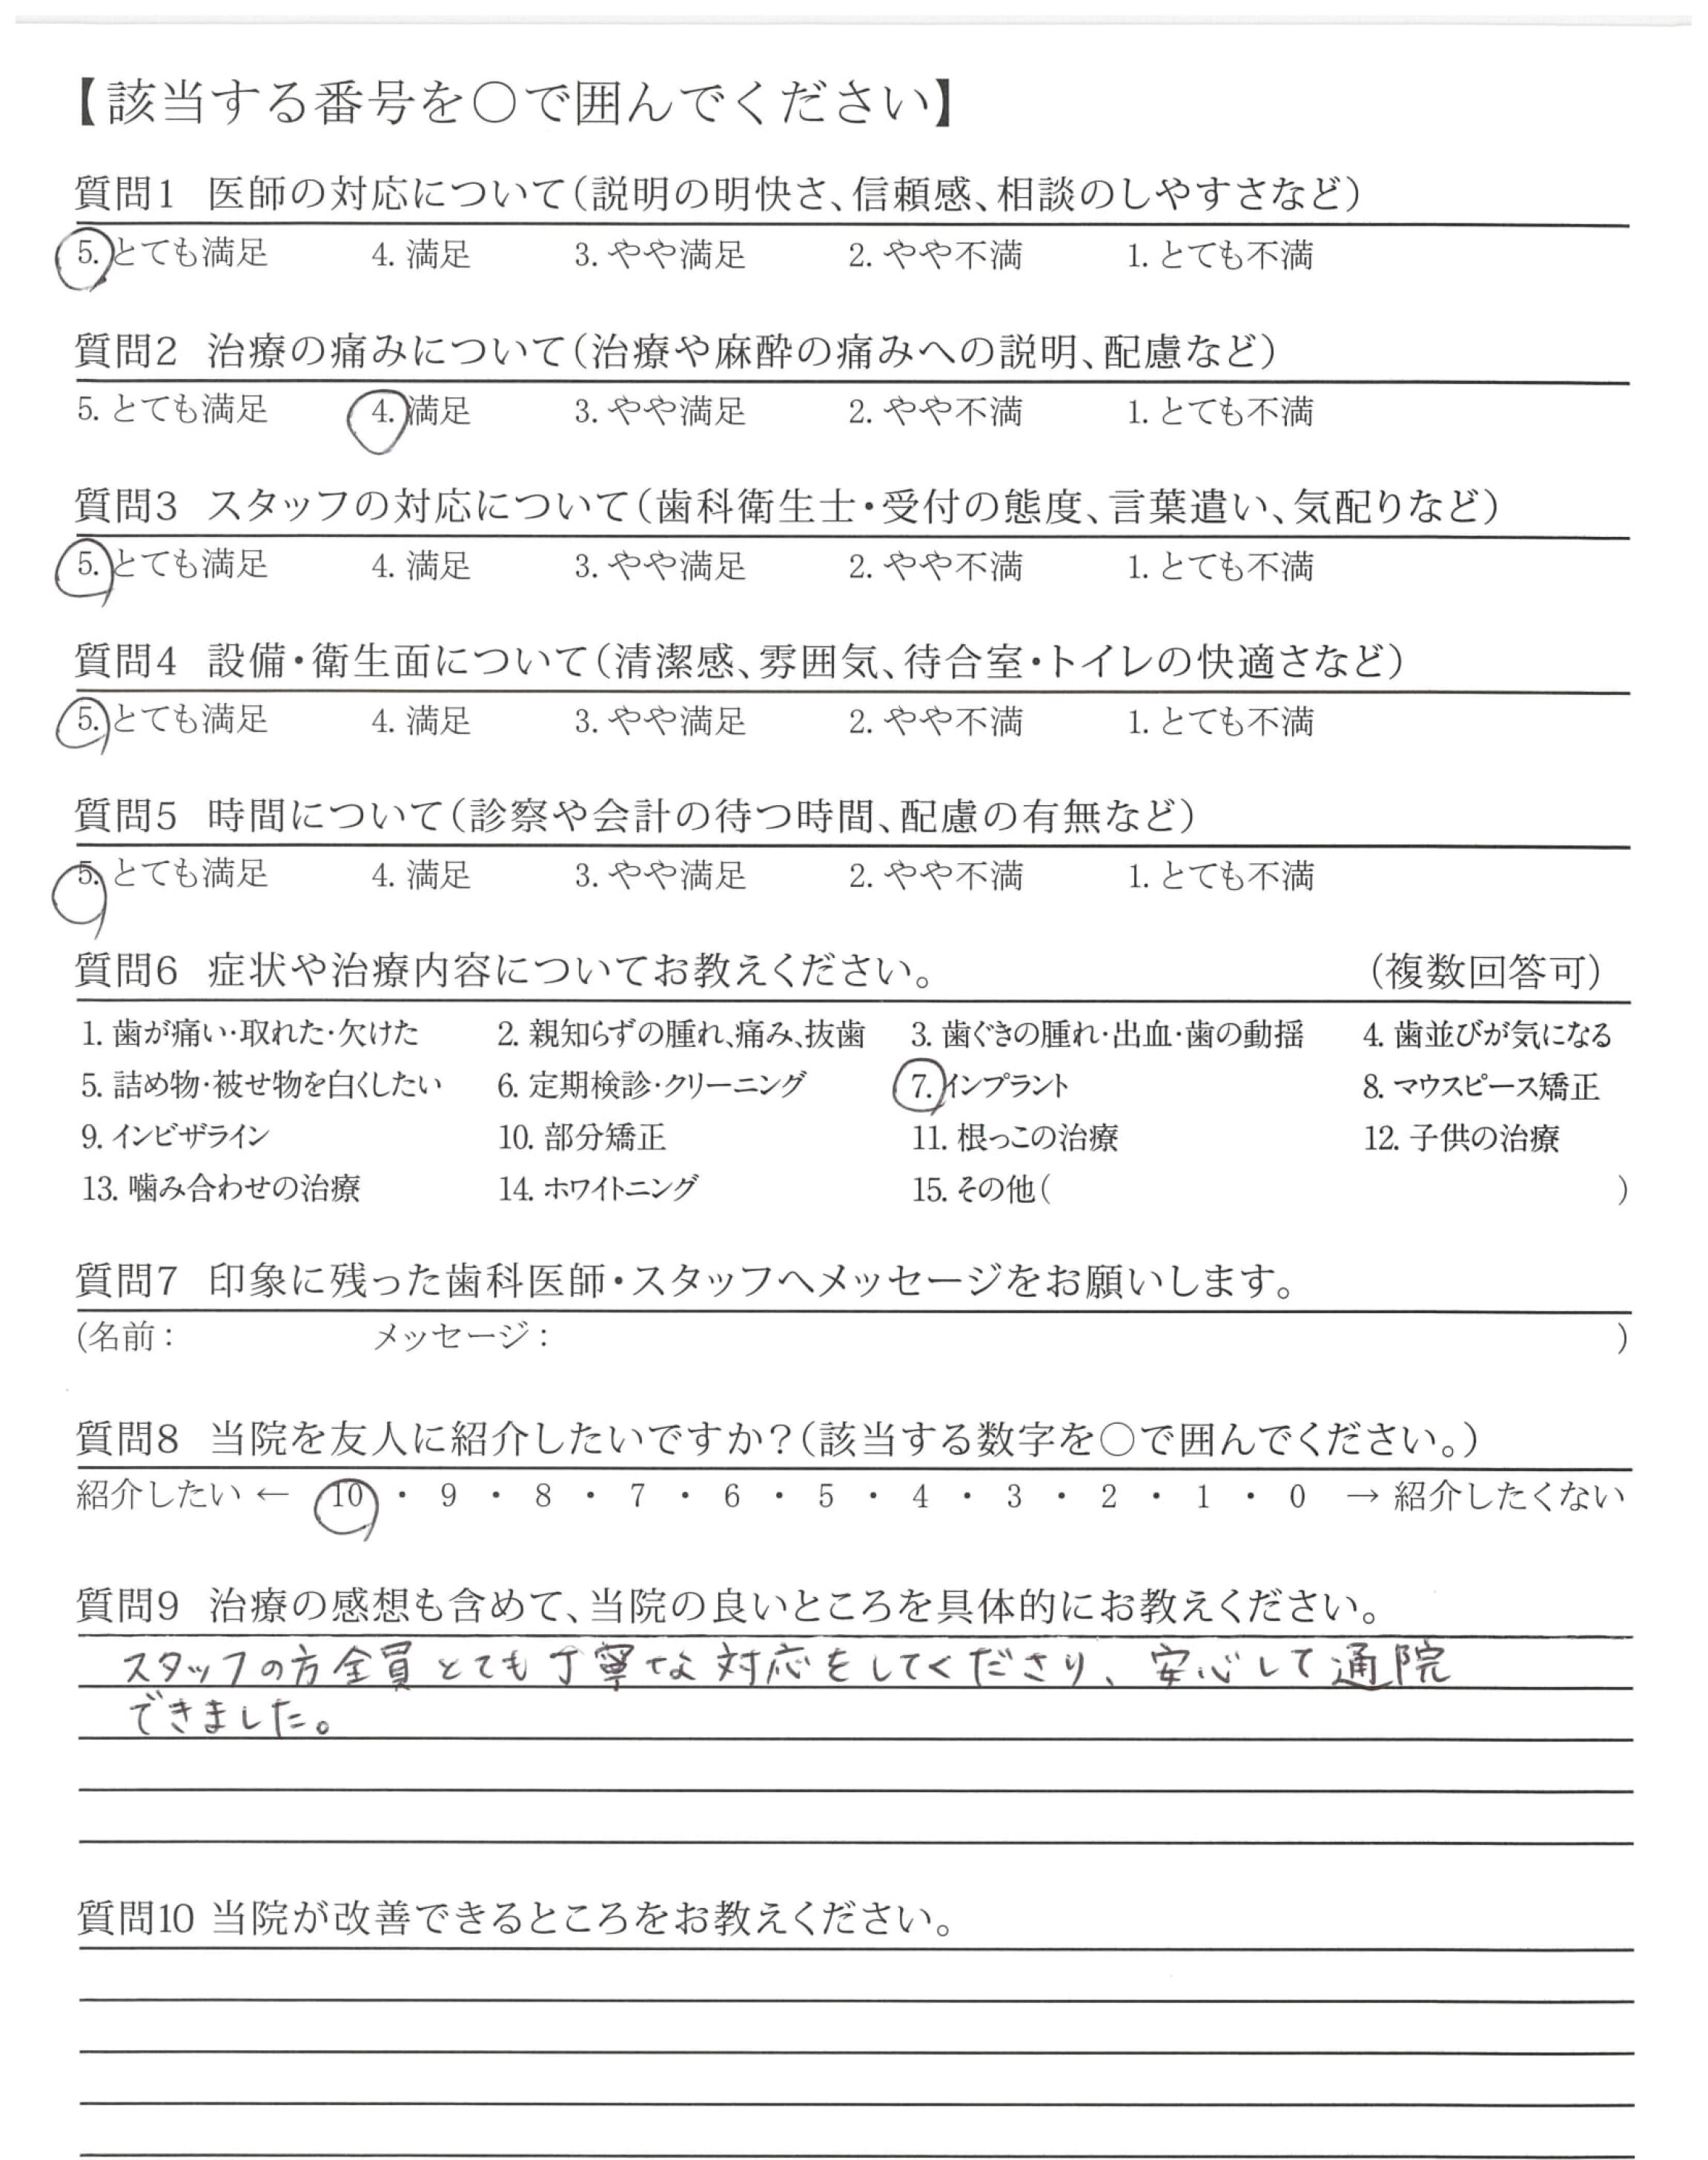 【該当する番号を○で囲んでください】
質問1 医師の対応について（説明の明快さ、信頼感、相談のしやすさなど）
5. とても満足 4. 満足 3. やや満足 2. やや不満 1. とても不満
質問2 治療の痛みについて（治療や麻酔の痛みへの説明、配慮など）
5. とても満足 4. 満足 3. やや満足 2. やや不満 1. とても不満
質問3 スタッフの対応について（歯科衛生士・受付の態度、言葉遣い、気配りなど）
5. とても満足 4. 満足 3. やや満足 2. やや不満 1. とても不満
質問4 設備・衛生面について（清潔感、雰囲気、待合室・トイレの快適さなど）
5. とても満足 4. 満足 3. やや満足 2. やや不満 1. とても不満
質問5 時間について（診察や会計の待つ時間、配慮の有無など）
5. とても満足 4. 満足 3. やや満足 2. やや不満 1. とても不満
質問6 症状や治療内容についてお教えください。 （複数回答可）
1. 歯が痛い・取れた・欠けた 2. 親知らずの腫れ、痛み、抜歯 3. 歯ぐきの腫れ・出血・歯の動揺 4. 歯並びが気になる
5. 詰め物・被せ物を白くしたい 6. 定期検診・クリーニング 7. インプラント 8. マウスピース矯正
9. インビザライン 10. 部分矯正 11. 根っこの治療 12. 子供の治療
13. 噛み合わせの治療 14. ホワイトニング 15. その他（ ）
質問7 印象に残った歯科医師・スタッフへメッセージをお願いします。
（名前： メッセージ： ）
質問8 当院を友人に紹介したいですか？（該当する数字を○で囲んでください。）
紹介したい ← 10 ・ 9 ・ 8 ・ 7 ・ 6 ・ 5 ・ 4 ・ 3 ・ 2 ・ 1 ・ 0 → 紹介したくない
質問9 治療の感想も含めて、当院の良いところを具体的にお教えください。
スタッフの方全員とても丁寧な対応をしてくださり、安心して通院
できました。
質問10 当院が改善できるところをお教えください。